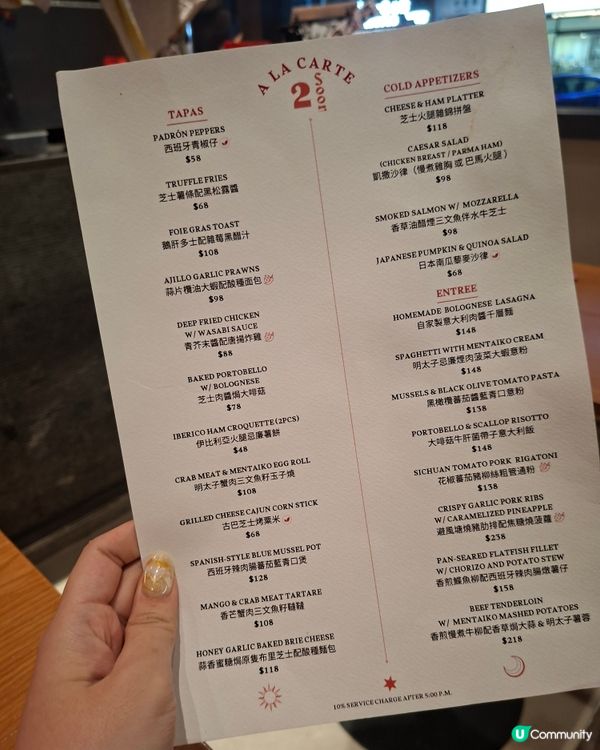 A LA CARTE
2 Soor
TAPAS
PADRÓN PEPPERS
西班牙青椒仔
$58
TRUFFLE FRIES
芝士薯條配黑松露醬
$68
FOIE GRAS TOAST
鵝肝多士配雜莓黑醋汁
$108
AJILLO GARLIC PRAWNS
蒜片欖油大蝦配酸種面包
$98
DEEP FRIED CHICKEN
W/ WASABI SAUCE
青芥末醬配唐揚炸雞
$88
BAKED PORTOBELLO
W/ BOLOGNESE
芝士肉醬焗大啡菇
$78
IBERICO HAM CROQUETTE (2PCS)
伊比利亞火腿忌廉薯餅
$48
CRAB MEAT & MENTAIKO EGG ROLL
明太子蟹肉三文魚籽玉子燒
$108
GRILLED CHEESE CAJUN CORN STICK
古巴芝士烤粟米
$68
SPANISH-STYLE BLUE MUSSEL POT
西班牙辣肉腸蕃茄藍青口煲
$128
MANGO & CRAB MEAT TARTARE
香芒蟹肉三文魚籽韃韃
$108
HONEY GARLIC BAKED BRIE CHEESE
蒜香蜜糖焗原隻布里芝士配酸種麵包
$118
COLD APPETIZERS
CHEESE & HAM PLATTER
芝士火腿雜錦拼盤
$118
CAESAR SALAD
(CHICKEN BREAST / PARMA HAM)
凱撒沙律（慢煮雞胸 或 巴馬火腿）
$98
SMOKED SALMON W/ MOZZARELLA
香草油醋煙三文魚伴水牛芝士
$98
JAPANESE PUMPKIN & QUINOA SALAD
日本南瓜藜麥沙律
$68
ENTREE
HOMEMADE BOLOGNESE LASAGNA
自家製意大利肉醬千層麵
$148
SPAGHETTI WITH MENTAIKO CREAM
明太子忌廉煙肉菠菜大蝦意粉
$148
MUSSELS & BLACK OLIVE TOMATO PASTA
黑橄欖蕃茄醬藍青口意粉
$138
PORTOBELLO & SCALLOP RISOTTO
大啡菇牛肝菌帶子意大利飯
$148
SICHUAN TOMATO PORK RIGATONI
花椒蕃茄豬柳絲粗管通粉
$138
CRISPY GARLIC PORK RIBS
W/ CARAMELIZED PINEAPPLE
避風塘燒豬肋排配焦糖燒菠蘿
$238
PAN-SEARED FLATFISH FILLET
W/ CHORIZO AND POTATO STEW
香煎鰈魚柳配西班牙辣肉腸燉薯仔
$158
BEEF TENDERLOIN
W/ MENTAIKO MASHED POTATOES
香煎慢煮牛柳配香草焗大蒜 & 明太子薯蓉
$218
10% SERVICE CHARGE AFTER 5:00 P.M.
U Community